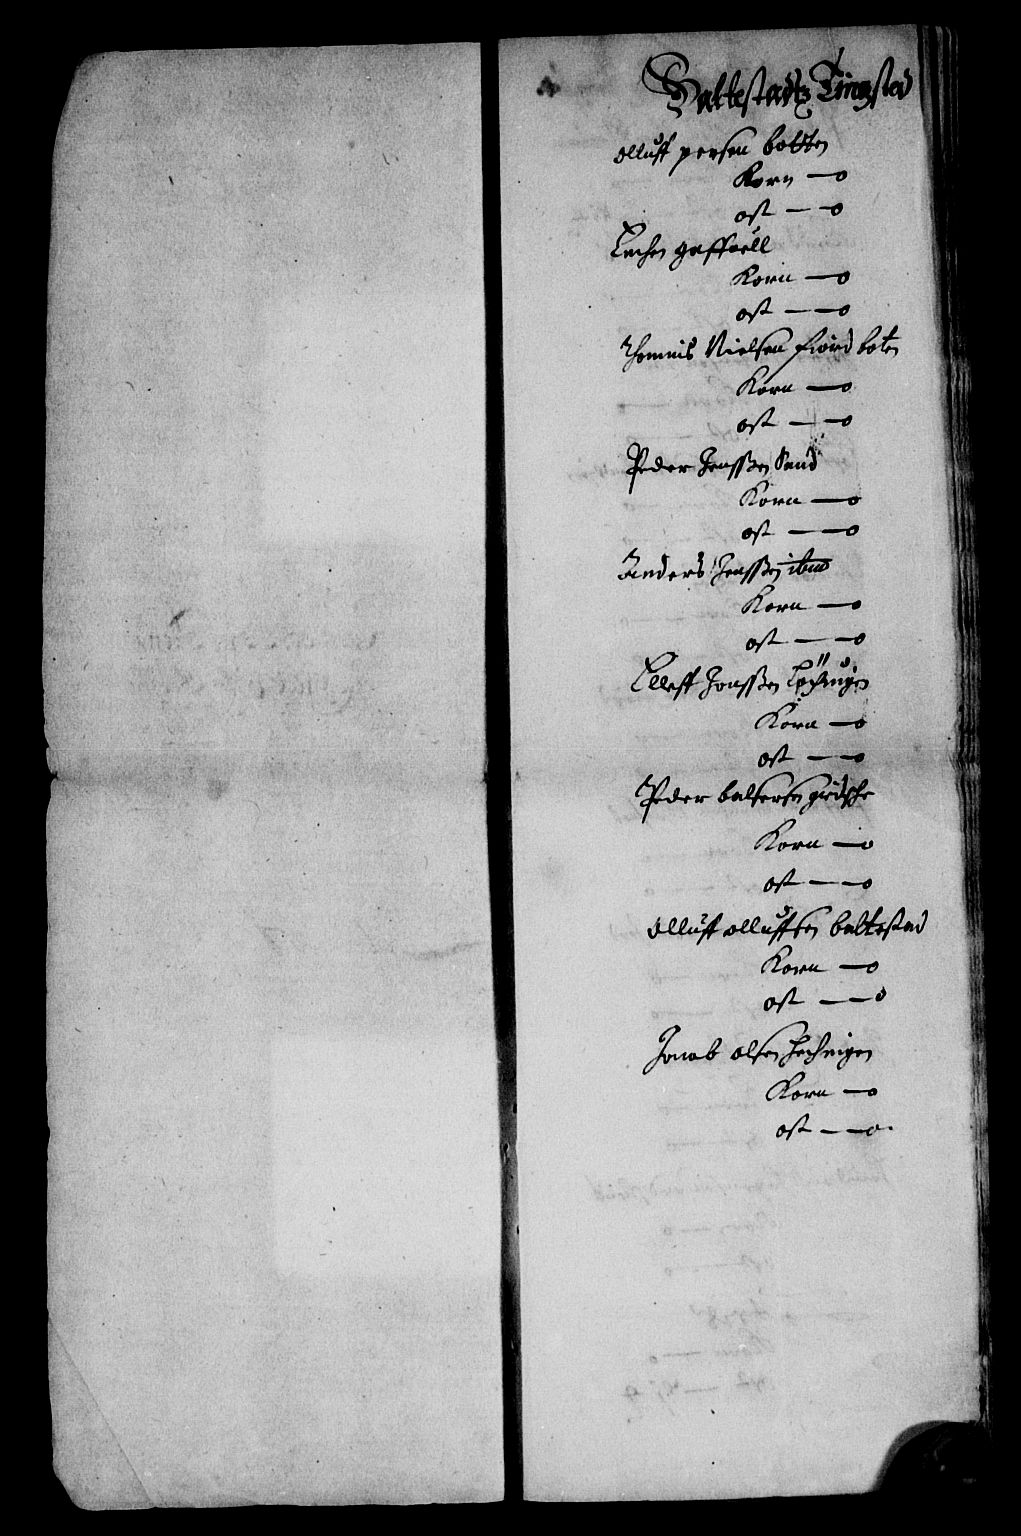 Baltestadtz Tingsted
olluff persen botten
Korn — 0
ost — — 0
Lochen gaffuell
Korn — 0
ost — — 0
Thommis Nielsen fiord boten
Korn — 0
ost — — 0
Peder Jenssen Sand
Korn — 0
ost — — 0
Anders Jenssen ibid
Korn — 0
ost — — 0
Elleff Jonssen
Korn — 0
ost — — 0
Peder baltersen
Korn — 0
ost — — 0
olluff olluffsen baltestad
Korn — 0
ost — — 0
Jacob olsen
Korn — 0
ost — — 0